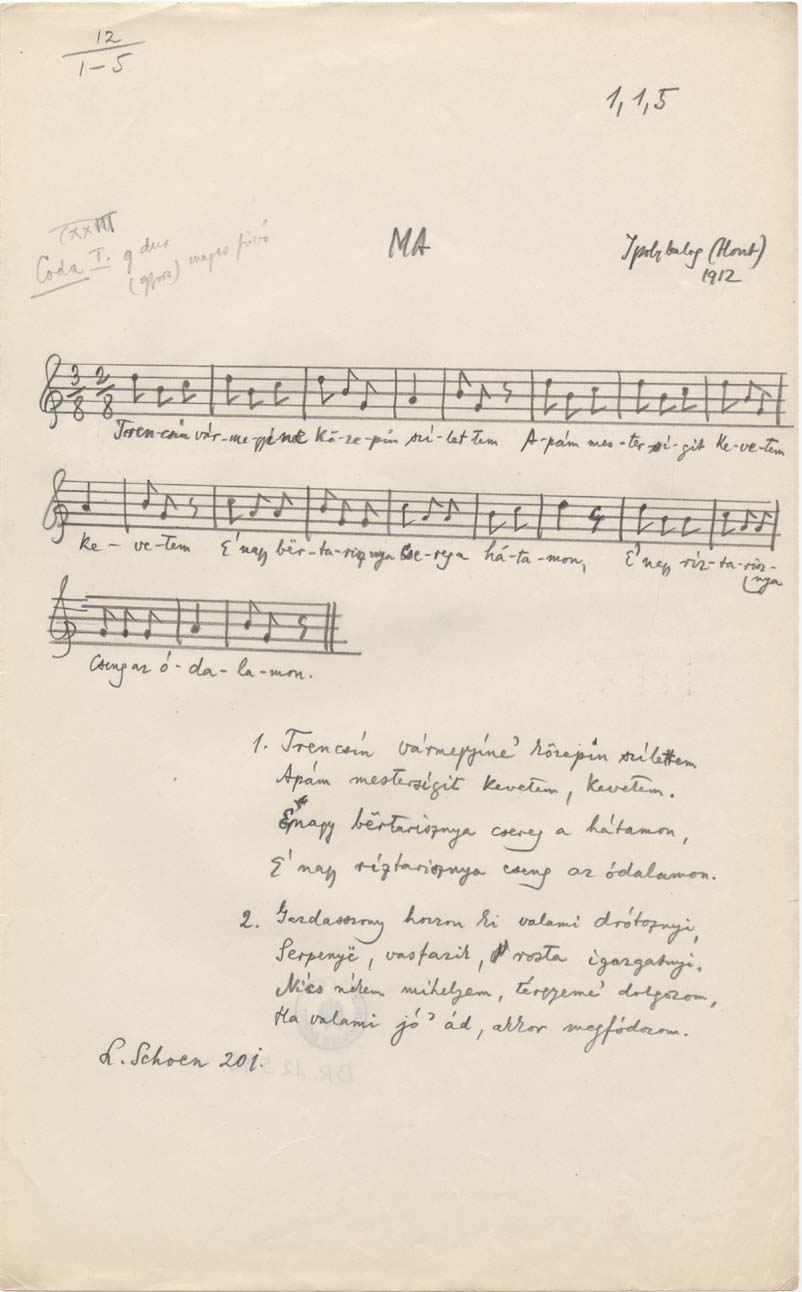 12
1-5
1, 1, 5
XXIII
Coda I. g dur
(gyors) magas fúvó
MA
Ipolybalog (Hont)
1912
3/8 2/8
Tren-csín vár-me-gyíne Kö-ze-pín szí-let tem A-pám mes-ter-sí-git Ke-ve-tem
Ke-ve-tem É' nagy bër-ta-risznya Cse-reg a há-ta-mon, É' nagy ríz-ta-risz-
nya
Cseng az ó-da-la-mon.
1. Trencsín vármegyíne' közepin szílettem
Apám mestersígit kevetem, kevetem.
É' nagy bërtarisznya csereg a hátamon,
É' nagy ríztarisznya cseng az ódalamon.
2. Gazdasszony hozzon ki valami drótoznyi,
Serpenyë, vasfazik, rosta igazgatnyi.
Nics nékem mihelyem, térgyeme' dolgozom,
Ha valami jó' ád, akkor megfódozom.
L. Schoen 20j.
BR. 12